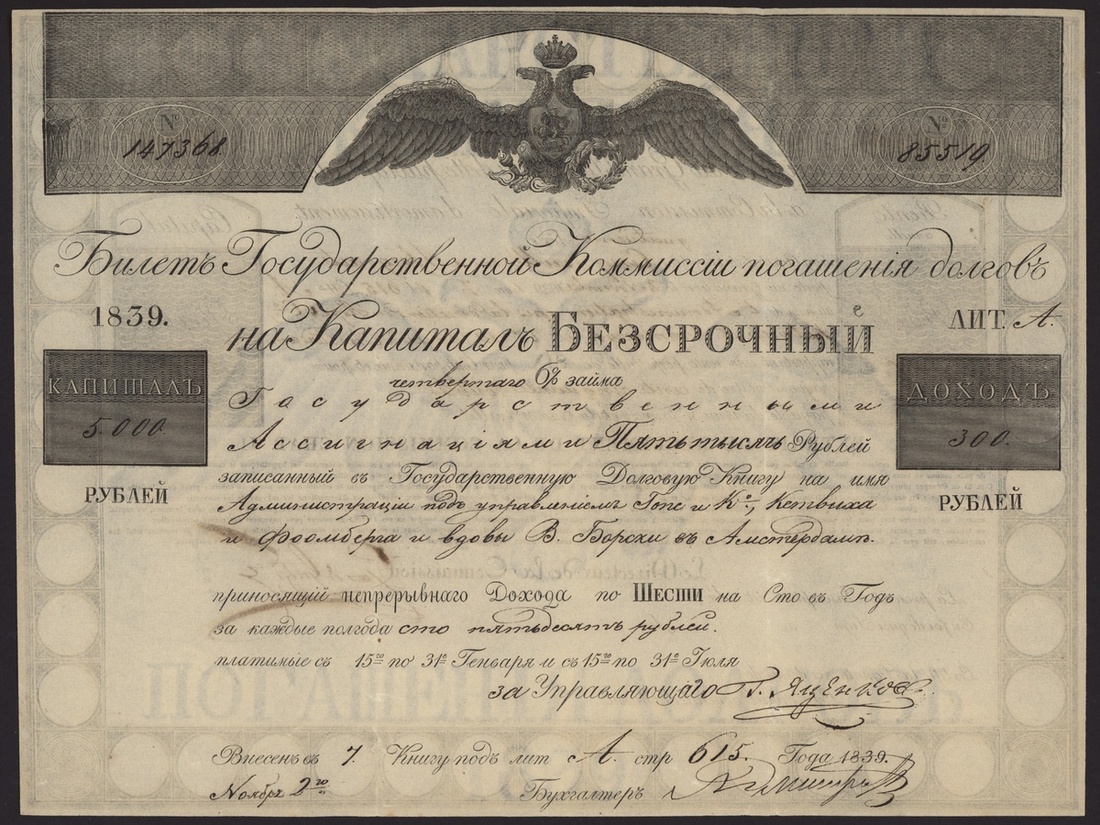 № 147368.
№ 85519
Билетъ Государственной Коммиссіи погашенія долговъ
1839.
на Капиталъ БЕЗСРОЧНЫЙ
ЛИТ. А.
КАПИТАЛЪ
5.000.
РУБЛЕЙ
ДОХОДЪ
300.
РУБЛЕЙ
четвертаго 6% займа
Государственными
Ассигнаціями Пять тысячь Рублей
записанный въ Государственную Долговую Книгу на имя
Администраціи подъ управленіемъ Гопе и Кº, Кетвиха
и Фоомберга и вдовы В. Борски въ Амстердамѣ.
приносящій непрерывнаго Дохода по ШЕСТИ на Сто въ Годъ
за каждые полгода сто пятьдесятъ рублей.
платимые съ 15го по 31е Генваря и съ 15го по 31е Іюля
за Управляющаго
Внесенъ въ 7. Книгу подъ лит А. стр 615. Года 1839.
Ноября 2го
Бухгалтеръ